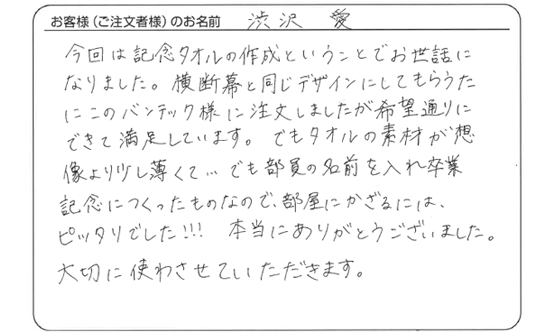 お客様(ご注文者様)のお名前 渋沢 愛
今回は記念タオルの作成ということでお世話に
なりました。横断幕と同じデザインにしてもらうた
にこのバンテック様に注文しましたが希望通りに
できて満足しています。でもタオルの素材が想
像より少し薄くて…でも部員の名前を入れ卒業
記念につくったものなので、部屋にかざるには、
ピッタリでした!!! 本当にありがとうございました。
大切に使わさせていただきます。